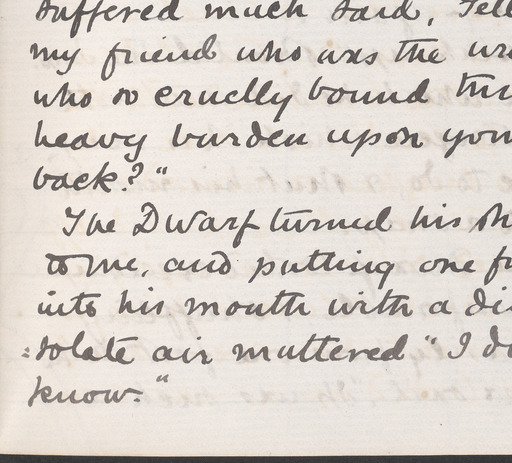 suffered much said, Tell
my friend who was the
who so cruelly bound
heavy burden upon you
back?"
The Dwarf turned his
to me, and putting one
into his mouth with a
:solate air muttered "I do
know."